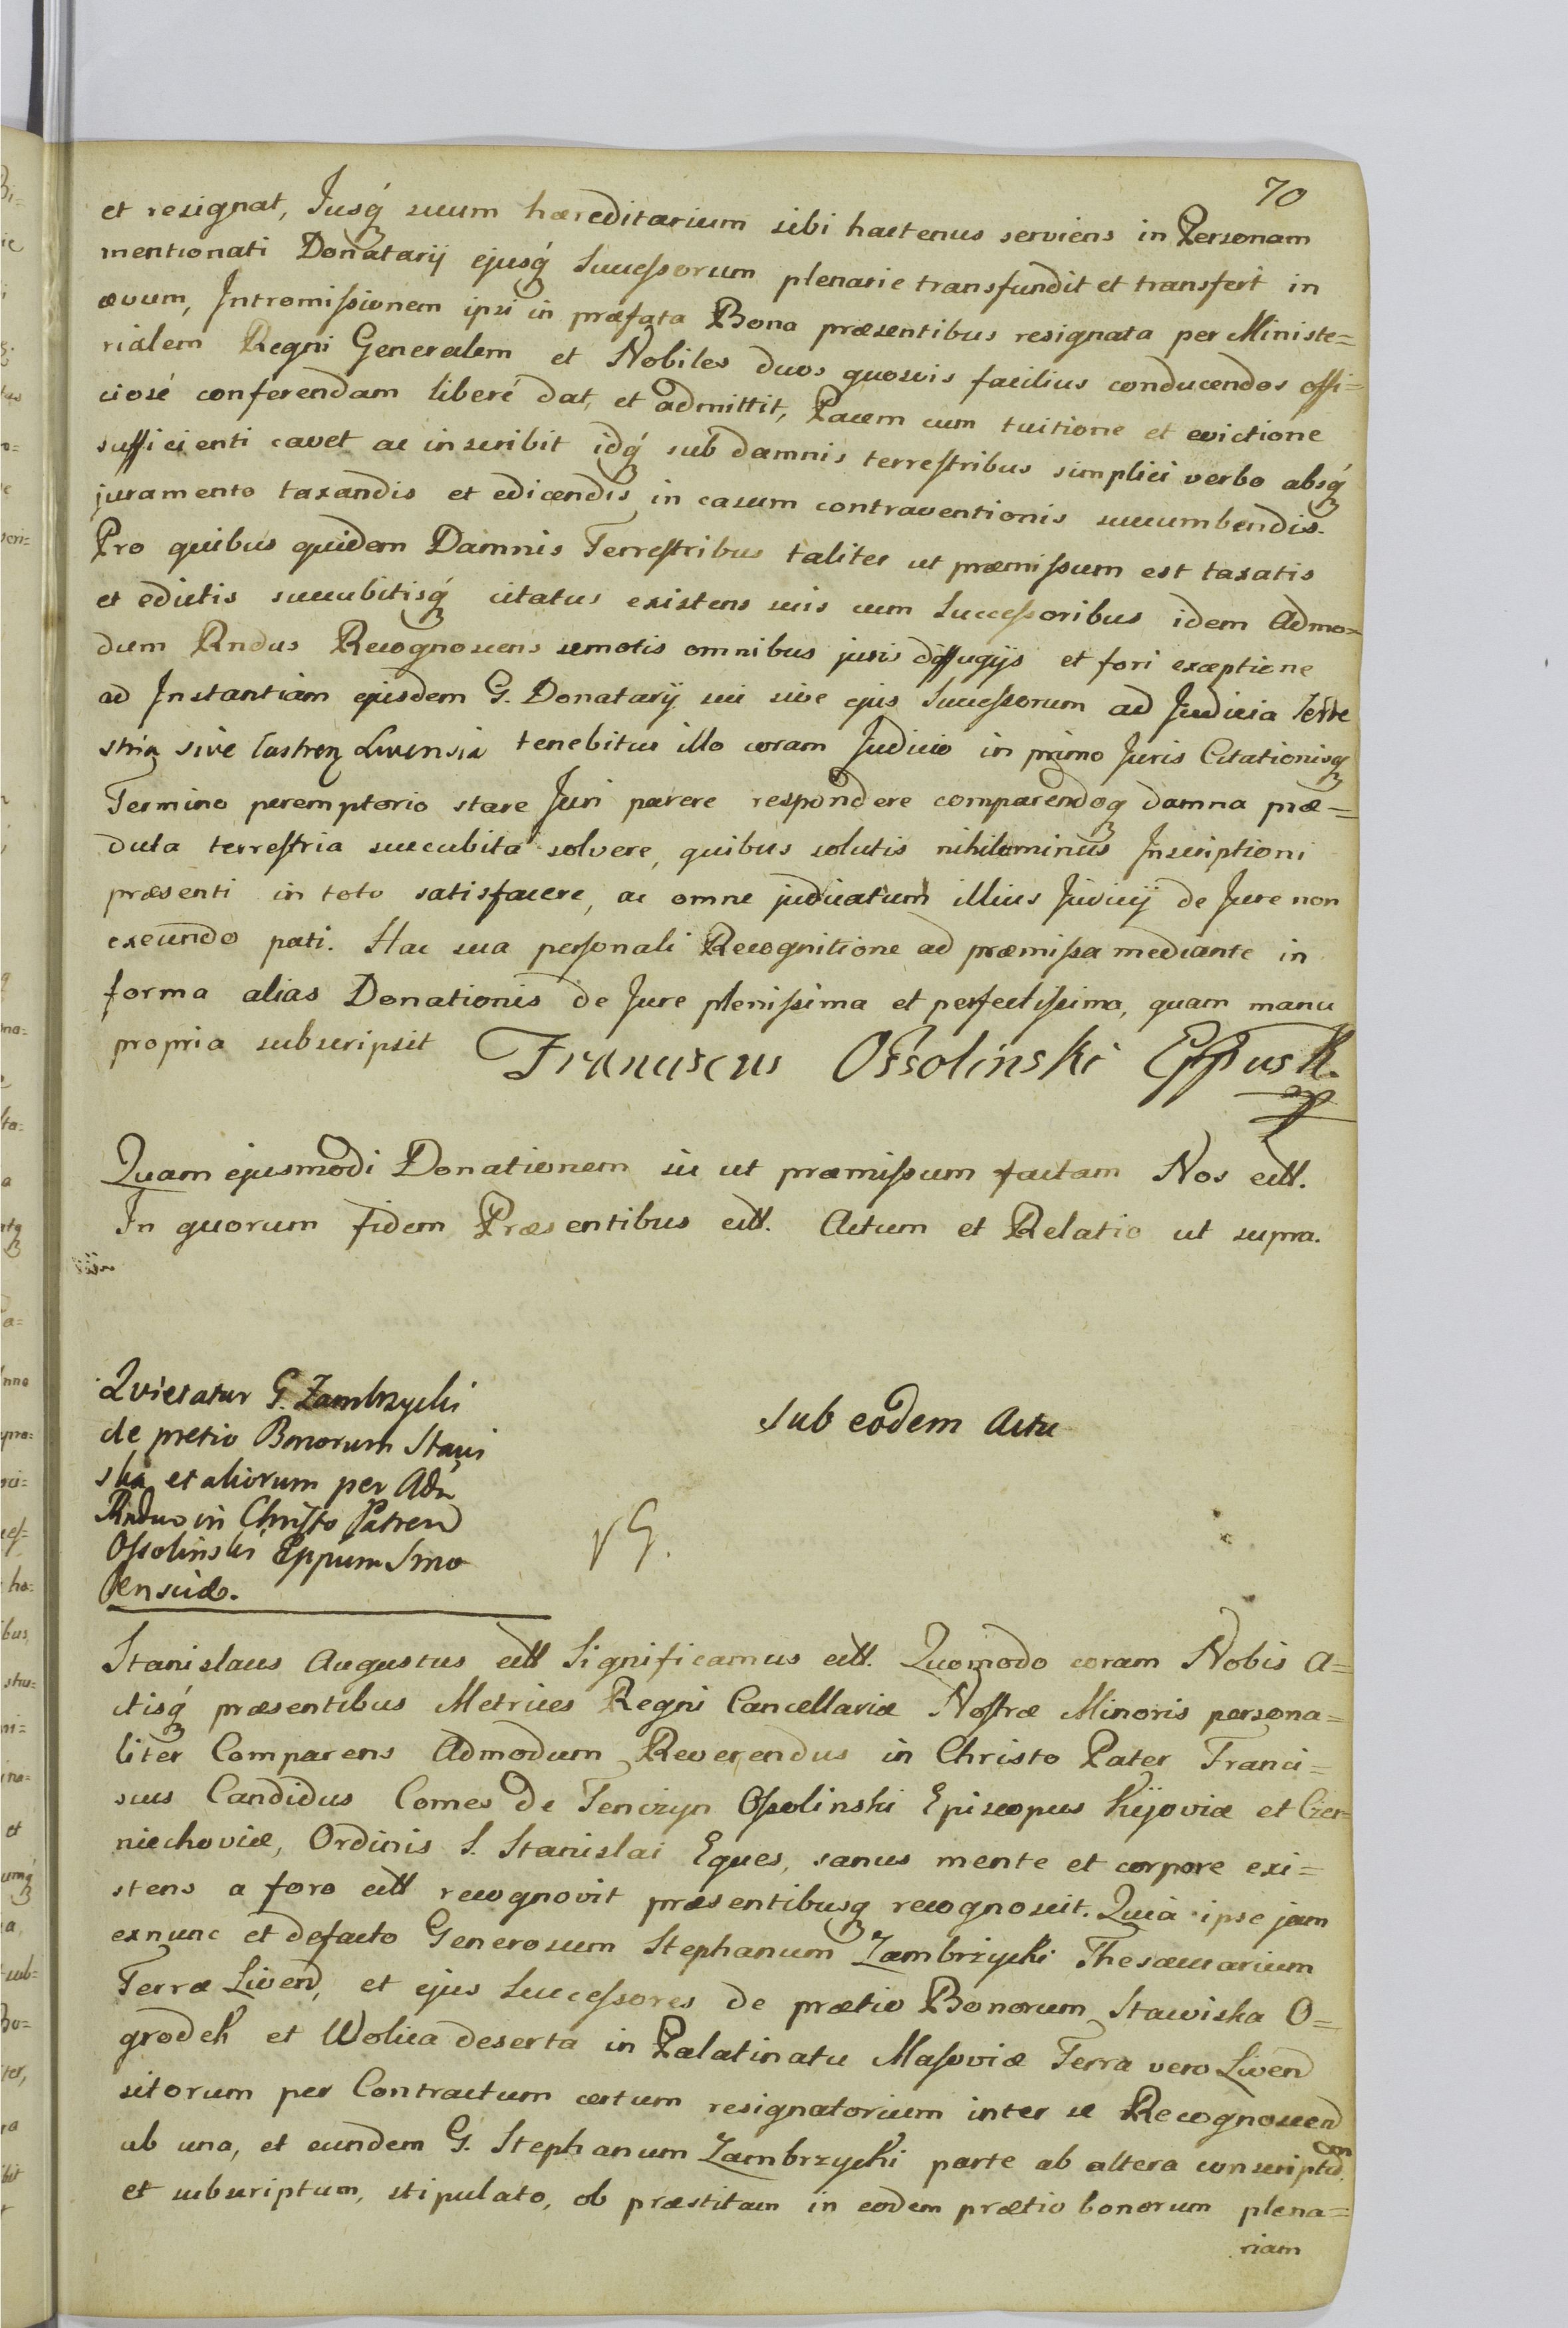 70
et resignat, Jusq́ suum hæreditarium sibi hactenus serviens in Personam
mentionati Donatarij ejusq́ Successorum plenarie transfundit et transfert in
ævum, Intromissionem ipsi in præfata Bona præsentibus resignata per Ministe=
rialem Regni Generalem et Nobiles duos quosvis facilius conducendos offi=
ciosé conferendam liberé dat, et admittit, Pacem cum tuitione et evictione
sufficienti cavet ac inscribit idq́ sub damnis terrestribus simplici verbo absq́
juramento taxandis et edicendis in casum contraventionis succumbendis.
Pro quibus quidem Damnis Terrestribus taliter ut præmissum est taxatis
et edictis succubitisq́ citatus existens suis cum Successoribus idem Admo=
dum Rndus Recognoscens semotis omnibus juris diffugijs et fori exceptione
ad Instantiam ejusdem G. Donatarij sui sive ejus Successorum ad Judicia Terre
stria sive Castren Livensia tenebitur illo coram Judicio in primo Juris Citationisq
Termino peremptorio stare Juri parere respondere comparendoq damna præ=
ducta terrestria succubita solvere, quibus solutis nihilominus Inscriptioni
præsenti in toto satisfacere, ac omne judicatum illius Judicij de Jure non
exeundo pati. Hac sua personali Recognitione ad præmissa mediante in
forma alias Donationis de Jure plenissima et perfectissima, quam manu
propria subscripsit Franciscus Ossolinski Eppus K.
Quam ejusmodi Donationem sic ut præmissum factam Nos ettt.
In quorum fidem Præsentibus ettt. Actum et Relatio ut supra.
Quietatur G. Zambrzycki
de pretio Bonorum Stawi
ska et aliorum per Adm
Rndum in Christo Patrem
Ossolinski Eppum Smo
lensciæ.
Sub eodem Actu
Stanislaus Augustus ettt Significamus ettt. Quomodo coram Nobis A=
ctisq́ præsentibus Metrices Regni Cancellariæ Nostræ Minoris persona=
liter Comparens Admodum Reverendus in Christo Pater Franci=
scus Candidus Comes de Tenczyn Ossolinski Episcopus Kijoviæ et Czer=
niechoviæ, Ordinis S. Stanislai Eques, sanus mente et corpore exi=
stens a foro ettt recognovit præsentibusq recognoscit. Quia ipse jam
exnunc et defacto Generosum Stephanum Zambrzycki Thesaurarium
Terræ Livend, et ejus Successores de prætio Bonorum Stawiska O=
grodek et Wolica deserta in Palatinatu Masoviæ Terra vero Livend
sitorum per Contractum certum resignatorium inter se Recognoscend
ab una, et eundem G. Stephanum Zambrzycki parte ab altera conscriptum
et subscriptum, stipulato, ob præstitam in eodem prætio bonorum plena=
riam